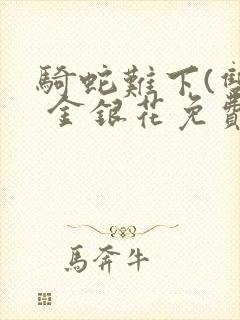 騎蛇難下(雙
金銀花免費
馬奔牛